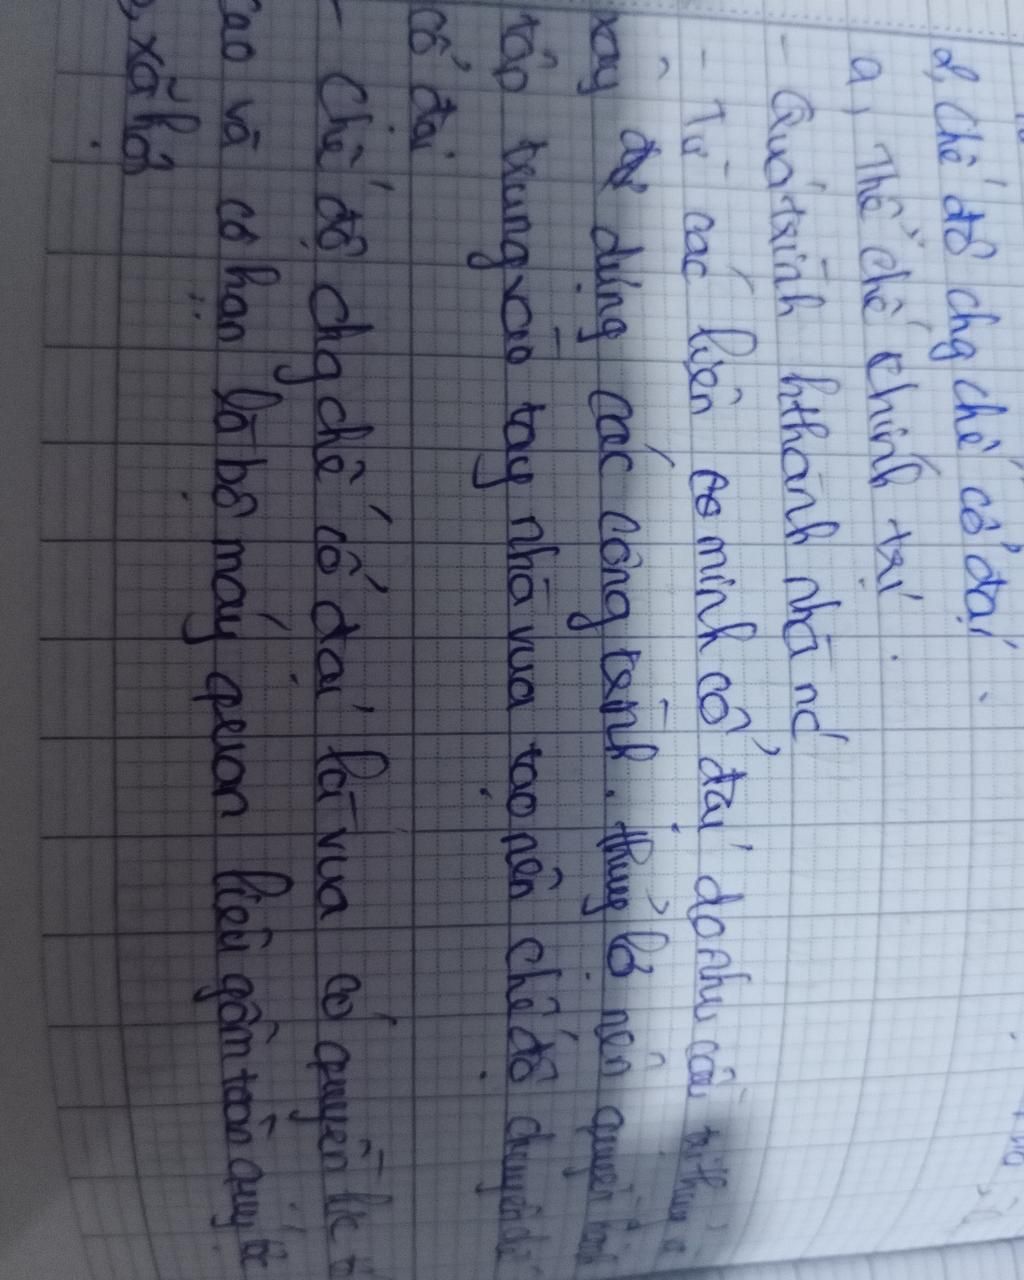 2, Chế độ chg chế cổ đại.
a, Thể chế chính trị.
- Quá trình hthành nhà nc
- Từ các liên minh cổ đại do nhu cầu trị thủy
xây dựng các công trình thủy lợi nên quyền hành
tập trung vào tay nhà vua tạo nên chế độ chuyên chế
cổ đại
- Chế độ chg chế cổ đại là vua có quyền lực tối
cao và có hàn là bộ máy quan liêu gồm toàn quý tộc
b, xã hội